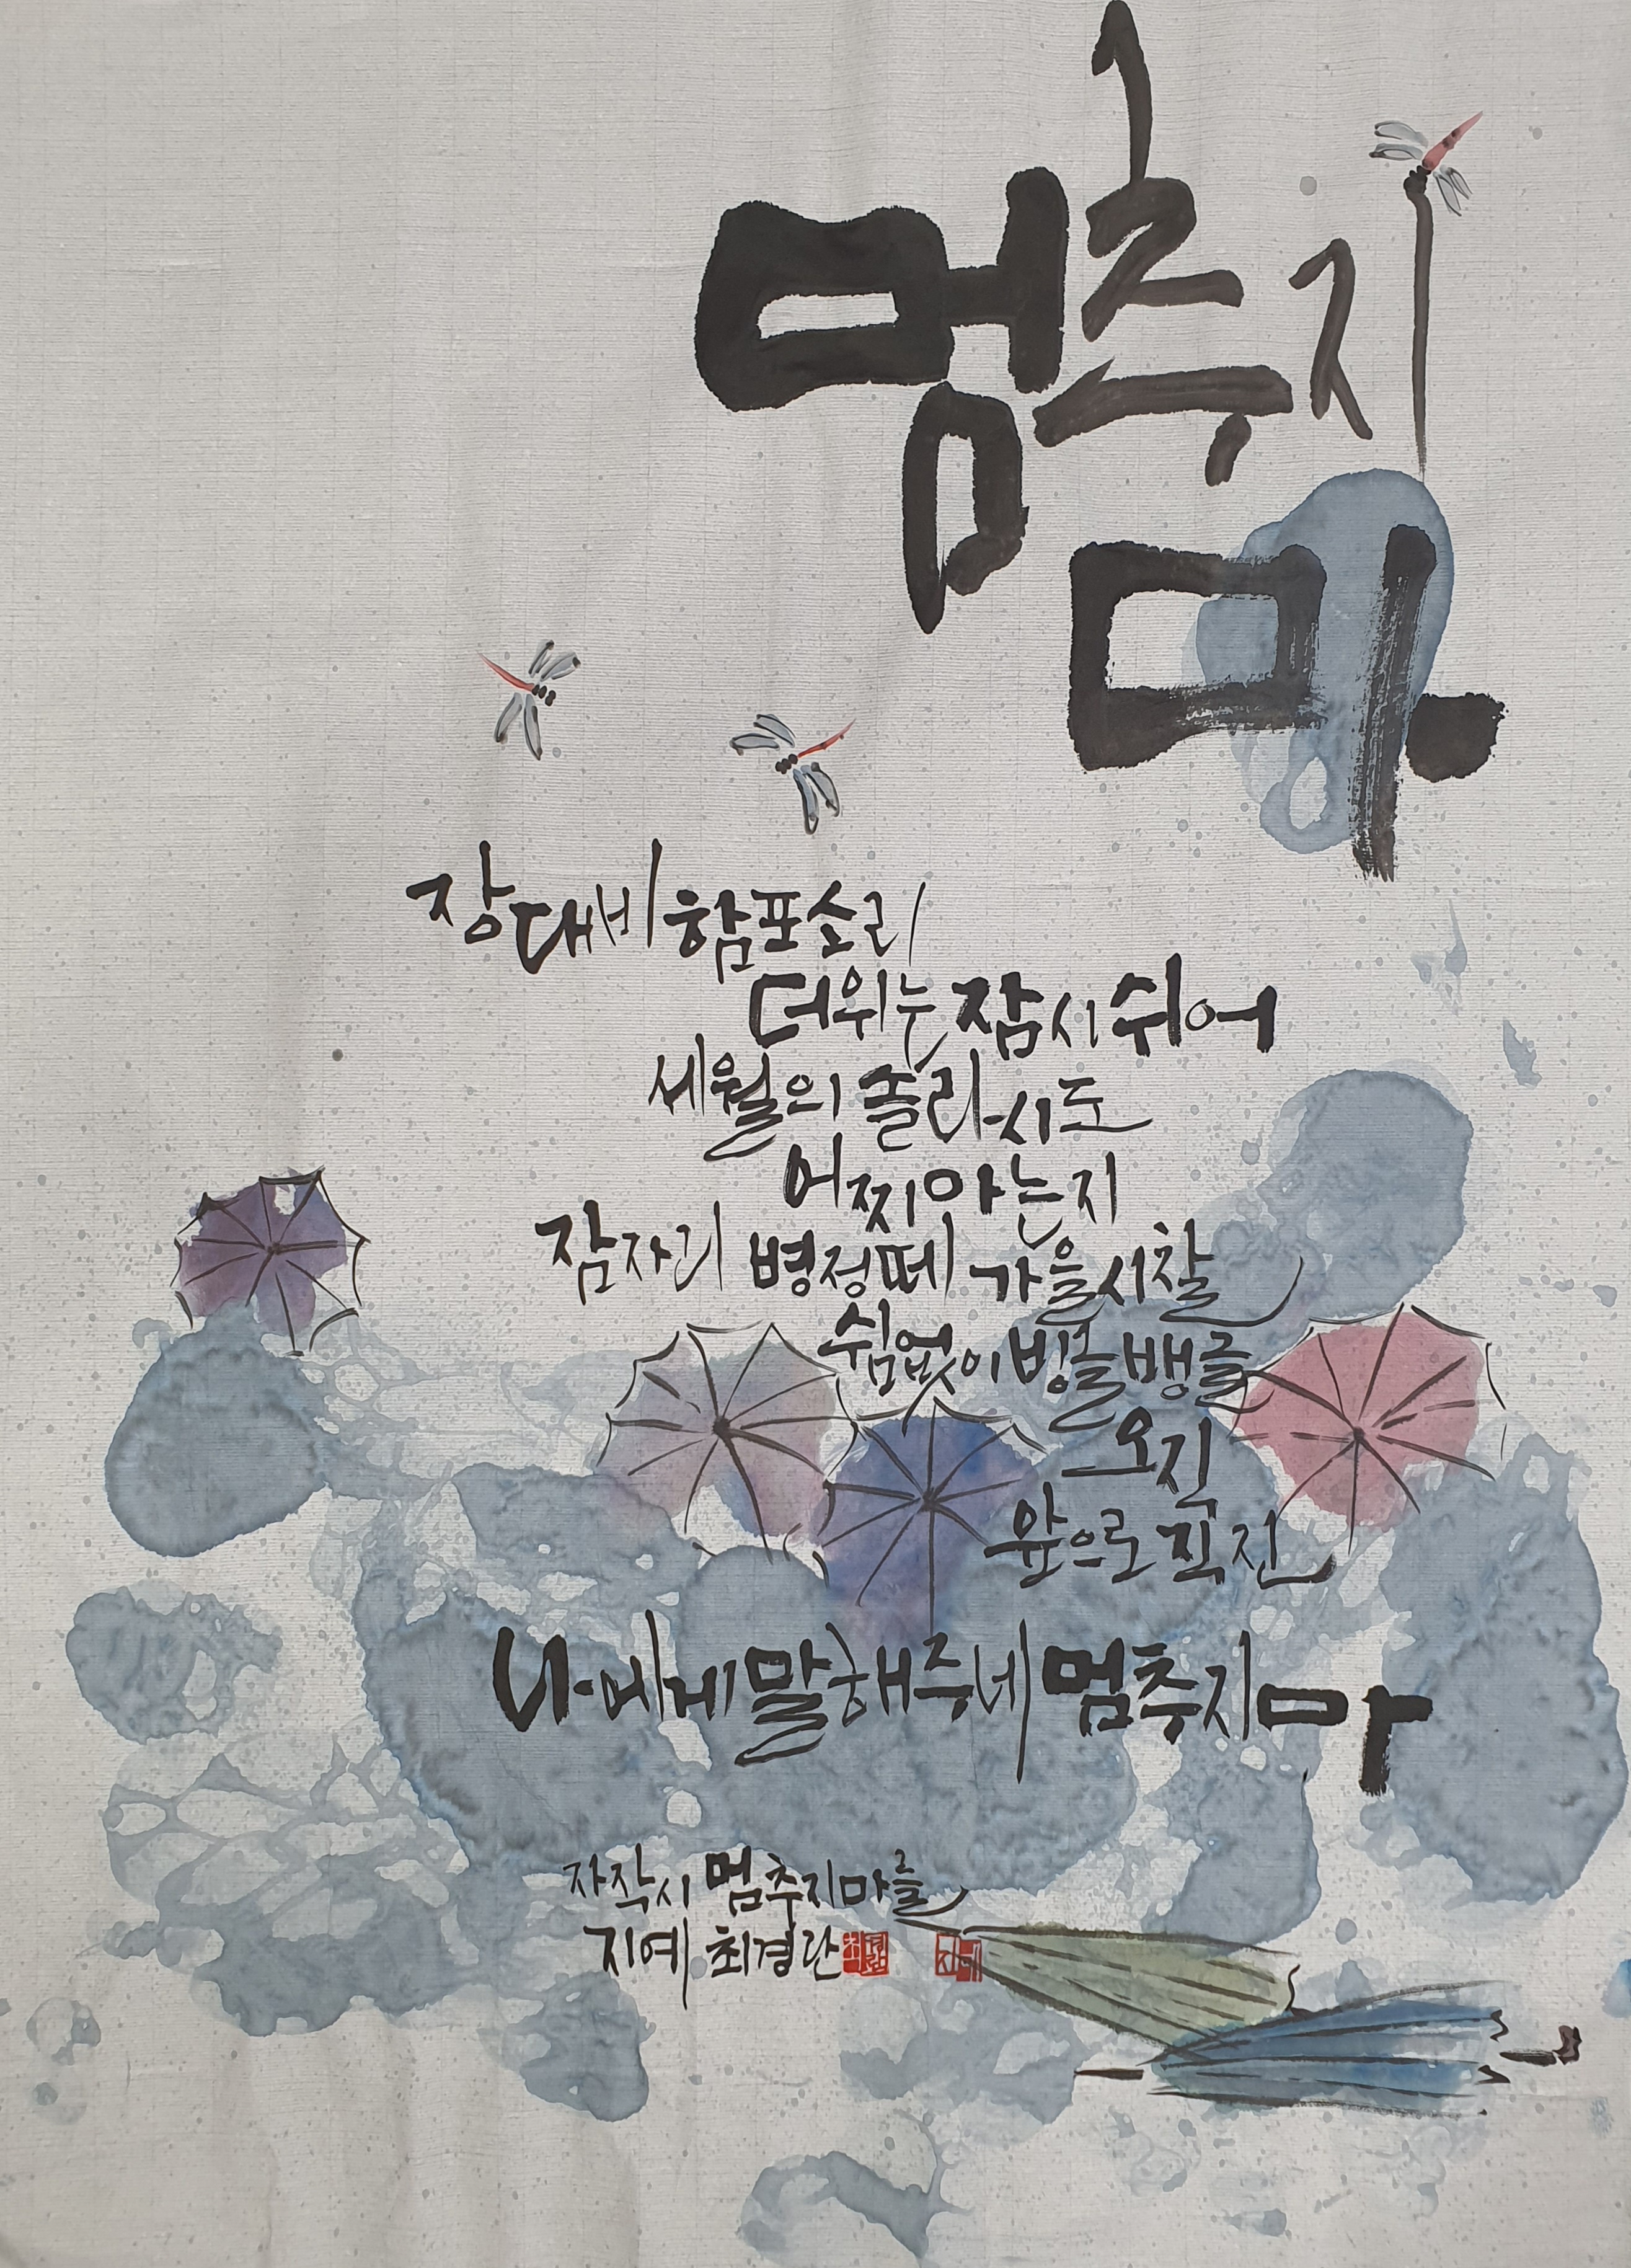 멈추지
마.
장대비 함포소리
더위는 잠시 쉬어
세월의 솔리시도
어찌 아는지
잠자리 병정떼 가을시찰
쉼없이 빙글뱅글
오직
앞으로 직진
나에게 말해주네 멈추지마
자작시 멈추지마를
지예 최경란